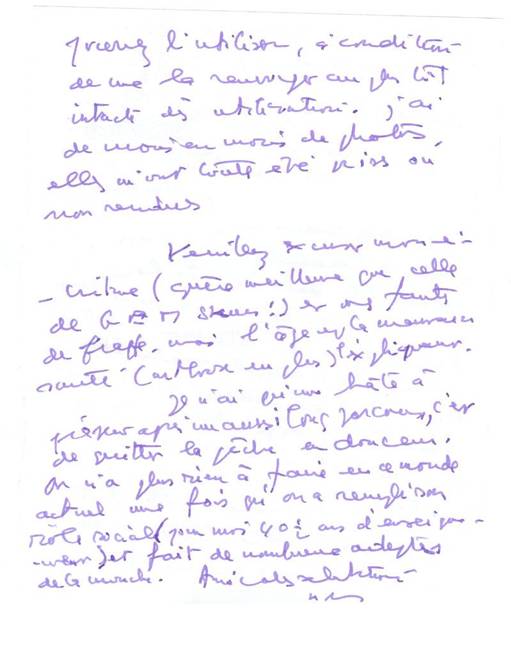 l'utiliser, à condition
de me la renvoyer au plus tôt
intacte dès utilisation. J'ai
de moins en moins de photos,
elles m'ont toutes été prises ou
non rendues
Veuillez excuser mon é-
criture (guère meilleure que celle
de G E M Skues !) et fautes
de frappe, mais l'âge et la mauvaise
santé (arthrose en plus) l'expliquent.
Je n'ai qu'une hâte à
présent après un aussi long parcours, c'est
de quitter la pêche en douceur.
On n'a plus rien à faire en ce monde
actuel une fois qu'on a rempli son
rôle social (pour moi 40 ½ ans d'enseigne-
ment) et fait de nombreux adeptes
de la mouche. Amicales salutations